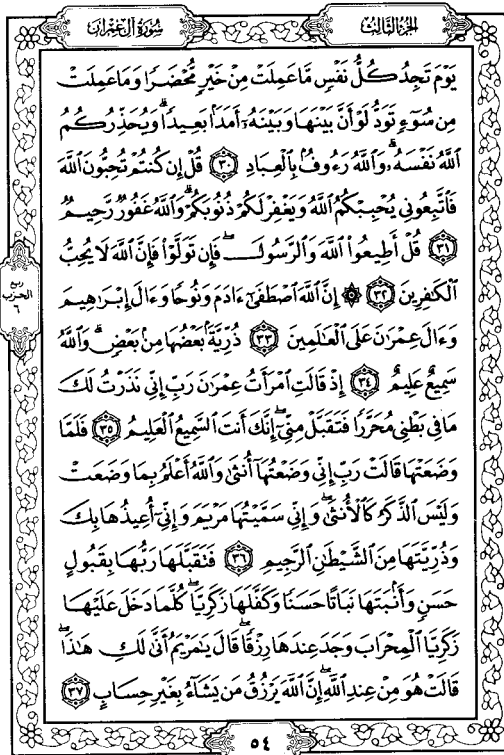 الجزء الثالث
سورة آل عمران
يَوْمَ تَجِدُ كُلُّ نَفْسٍ مَّا عَمِلَتْ مِنْ خَيْرٍ مُّحْضَرًا وَمَا عَمِلَتْ
مِن سُوٓءٍ تَوَدُّ لَوْ أَنَّ بَيْنَهَا وَبَيْنَهُۥٓ أَمَدًۢا بَعِيدًا ۗ وَيُحَذِّرُكُمُ
ٱللَّهُ نَفْسَهُۥ ۗ وَٱللَّهُ رَءُوفٌۢ بِٱلْعِبَادِ ٣٠ قُلْ إِن كُنتُمْ تُحِبُّونَ ٱللَّهَ
فَٱتَّبِعُونِى يُحْبِبْكُمُ ٱللَّهُ وَيَغْفِرْ لَكُمْ ذُنُوبَكُمْ ۗ وَٱللَّهُ غَفُورٌ رَّحِيمٌ
٣١ قُلْ أَطِيعُوا۟ ٱللَّهَ وَٱلرَّسُولَ ۖ فَإِن تَوَلَّوْا۟ فَإِنَّ ٱللَّهَ لَا يُحِبُّ
ٱلْكَٰفِرِينَ ٣٢ ۞ إِنَّ ٱللَّهَ ٱصْطَفَىٰٓ ءَادَمَ وَنُوحًا وَءَالَ إِبْرَٰهِيمَ
وَءَالَ عِمْرَٰنَ عَلَى ٱلْعَٰلَمِينَ ٣٣ ذُرِّيَّةًۢ بَعْضُهَا مِنۢ بَعْضٍ ۗ وَٱللَّهُ
سَمِيعٌ عَلِيمٌ ٣٤ إِذْ قَالَتِ ٱمْرَأَتُ عِمْرَٰنَ رَبِّ إِنِّى نَذَرْتُ لَكَ
مَا فِى بَطْنِى مُحَرَّرًا فَتَقَبَّلْ مِنِّىٓ ۖ إِنَّكَ أَنتَ ٱلسَّمِيعُ ٱلْعَلِيمُ ٣٥ فَلَمَّا
وَضَعَتْهَا قَالَتْ رَبِّ إِنِّى وَضَعْتُهَآ أُنثَىٰ وَٱللَّهُ أَعْلَمُ بِمَا وَضَعَتْ
وَلَيْسَ ٱلذَّكَرُ كَٱلْأُنثَىٰ ۖ وَإِنِّى سَمَّيْتُهَا مَرْيَمَ وَإِنِّىٓ أُعِيذُهَا بِكَ
وَذُرِّيَّتَهَا مِنَ ٱلشَّيْطَٰنِ ٱلرَّجِيمِ ٣٦ فَتَقَبَّلَهَا رَبُّهَا بِقَبُولٍ
حَسَنٍ وَأَنۢبَتَهَا نَبَاتًا حَسَنًا وَكَفَّلَهَا زَكَرِيَّا ۖ كُلَّمَا دَخَلَ عَلَيْهَا
زَكَرِيَّا ٱلْمِحْرَابَ وَجَدَ عِندَهَا رِزْقًا ۖ قَالَ يَٰمَرْيَمُ أَنَّىٰ لَكِ هَٰذَا ۖ
قَالَتْ هُوَ مِنْ عِندِ ٱللَّهِ ۖ إِنَّ ٱللَّهَ يَرْزُقُ مَن يَشَآءُ بِغَيْرِ حِسَابٍ ٣٧
ربع
الحزب
٦
٥٤